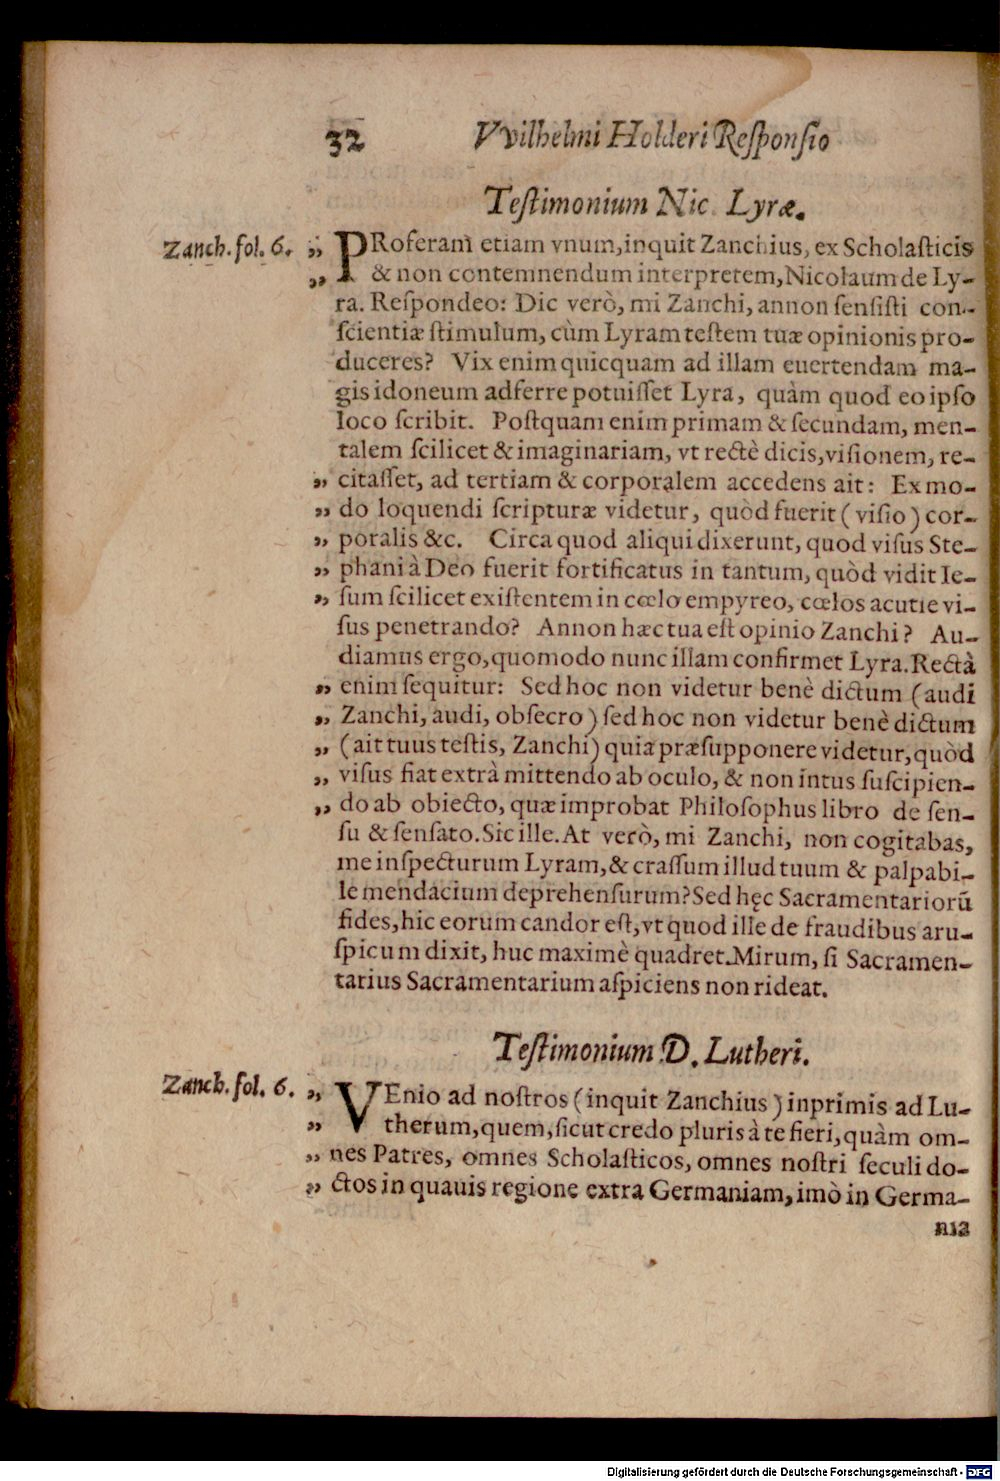 32 Vvilhelmi Holderi Reſponſio
Teſtimonium Nic. Lyræ.
Zanch. fol. 6. „ PRoferam etiam vnum, inquit Zanchius, ex Scholaſticis
„ & non contemnendum interpretem, Nicolaum de Ly-
ra. Reſpondeo: Dic verò, mi Zanchi, annon ſenſiſti con-
ſcientiæ ſtimulum, cùm Lyram teſtem tuæ opinionis pro-
duceres? Vix enim quicquam ad illam euertendam ma-
gis idoneum adferre potuiſſet Lyra, quàm quod eo ipſo
loco ſcribit. Poſtquam enim primam & ſecundam, men-
talem ſcilicet & imaginariam, vt rectè dicis, viſionem, re-
„ citaſſet, ad tertiam & corporalem accedens ait: Ex mo-
„ do loquendi ſcripturæ videtur, quòd fuerit (viſio) cor-
„ poralis &c. Circa quod aliqui dixerunt, quod viſus Ste-
„ phani à Deo fuerit fortificatus in tantum, quòd vidit Ie-
„ ſum ſcilicet exiſtentem in cœlo empyreo, cœlos acutie vi-
ſus penetrando? Annon hæc tua eſt opinio Zanchi? Au-
diamus ergo, quomodo nunc illam confirmet Lyra. Rectà
„ enim ſequitur: Sed hoc non videtur benè dictum (audi
„ Zanchi, audi, obſecro) ſed hoc non videtur benè dictum
„ (ait tuus teſtis, Zanchi) quia præſupponere videtur, quòd
„ viſus fiat extrà mittendo ab oculo, & non intus ſuſcipien-
„ do ab obiecto, quæ improbat Philoſophus libro de ſen-
ſu & ſenſato. Sic ille. At verò, mi Zanchi, non cogitabas,
me inſpecturum Lyram, & craſſum illud tuum & palpabi-
le mendacium deprehenſurum? Sed hęc Sacramentariorũ
fides, hic eorum candor eſt, vt quod ille de fraudibus aru-
ſpicum dixit, huc maximè quadret. Mirum, ſi Sacramen-
tarius Sacramentarium aſpiciens non rideat.
Teſtimonium D. Lutheri.
Zanch. fol. 6. „ VEnio ad noſtros (inquit Zanchius) inprimis ad Lu-
„ therum, quem, ſicut credo pluris à te fieri, quàm om-
„ nes Patres, omnes Scholaſticos, omnes noſtri ſeculi do-
„ ctos in quauis regione extra Germaniam, imò in Germa-
nia
Digitalisierung gefördert durch die Deutsche Forschungsgemeinschaft - DFG